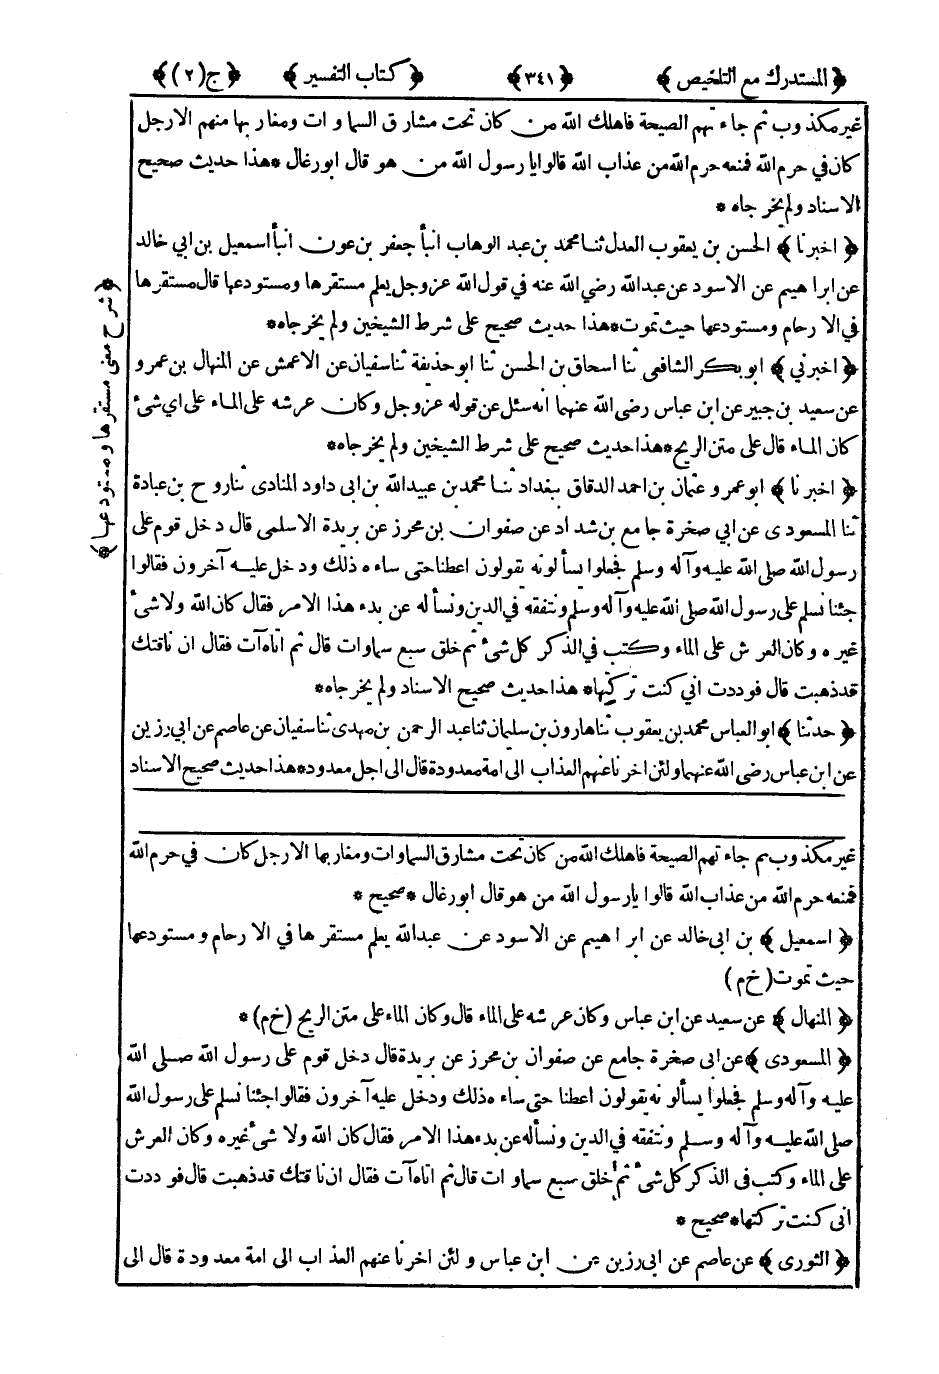 ﴿ المستدرك مع التلخيص ﴾ ﴿٣٤١﴾ ﴿ كتاب التفسير ﴾ ﴿ ج(٢) ﴾
غير مكذوب ثم جاءتهم الصيحة فاهلك الله من كان تحت مشارق السماوات ومغاربها منهم الا رجل
كان في حرم الله فمنعه حرم الله من عذاب الله قالوا يا رسول الله من هو قال ابو رغال *هذا حديث صحيح
الاسناد ولم يخرجاه *
﴿ اخبرنا ﴾ الحسن بن يعقوب العدل ثنا محمد بن عبد الوهاب انبأ جعفر بن عون انبأ اسمعيل بن ابي خالد
عن ابراهيم عن الاسود عن عبدالله رضي الله عنه في قول الله عز وجل يعلم مستقرها ومستودعها قال مستقرها
في الارحام ومستودعها حيث تموت*هذا حديث صحيح على شرط الشيخين ولم يخرجاه*
﴿ اخبرني ﴾ ابو بكر الشافعي ثنا اسحاق بن الحسن ثنا ابو حذيفة ثنا سفيان عن الاعمش عن المنهال بن عمرو
عن سعيد بن جبير عن ابن عباس رضى الله عنهما انه سئل عن قوله عز وجل وكان عرشه على الماء على اي شئ
كان الماء قال على متن الريح*هذا حديث صحيح على شرط الشيخين ولم يخرجاه*
﴿ اخبرنا ﴾ ابو عمرو عثمان بن احمد الدقاق ببغداد ثنا محمد بن عبيدالله بن ابى داود المنادى ثنا روح بن عبادة
ثنا المسعودى عن ابي صخرة جامع بن شداد عن صفوان بن محرز عن بريدة الاسلمى قال دخل قوم على
رسول الله صلى الله عليه وآله وسلم فجعلوا يسألونه يقولون اعطنا حتى ساءه ذلك ودخل عليه آخرون فقالوا
جئنا نسلم على رسول الله صلى الله عليه وآله وسلم ونتفقه في الدين ونسأله عن بدء هذا الامر فقال كان الله ولا شئ
غيره وكان العرش على الماء وكتب في الذكر كل شئ ثم خلق سبع سماوات قال ثم اتاه آت فقال ان ناقتك
قد ذهبت قال فوددت اني كنت تركتها* هذا حديث صحيح الاسناد ولم يخرجاه*
﴿ حدثنا ﴾ ابو العباس محمد بن يعقوب ثنا هارون بن سليمان ثنا عبد الرحمن بن مهدى ثنا سفيان عن عاصم عن ابي رزين
عن ابن عباس رضى الله عنهما ولئن اخرنا عنهم العذاب الى امة معدودة قال الى اجل معدود*هذا حديث صحيح الاسناد
﴿ شرح معنى مستقرها ومستودعها ﴾
غير مكذوب ثم جاءتهم الصيحة فاهلك الله من كان تحت مشارق السماوات ومغاربها الا رجل كان في حرم الله
فمنعه حرم الله من عذاب الله قالوا يا رسول الله من هو قال ابو رغال *صحيح *
﴿ اسمعيل ﴾ بن ابى خالد عن ابراهيم عن الاسود عن عبدالله يعلم مستقرها في الارحام ومستودعها
حيث تموت (خ م)
﴿ المنهال ﴾ عن سعيد عن ابن عباس وكان عرشه على الماء قال وكان الماء على متن الريح (خ م) *
﴿ المسعودى ﴾ عن ابى صخرة جامع عن صفوان بن محرز عن بريدة قال دخل قوم على رسول الله صلى الله
عليه وآله وسلم فجعلوا يسألونه يقولون اعطنا حتى ساءه ذلك ودخل عليه آخرون فقالوا جئنا نسلم على رسول الله
صلى الله عليه وآله وسلم ونتفقه في الدين ونسأله عن بدء هذا الامر فقال كان الله ولا شئ غيره وكان العرش
على الماء وكتب فى الذكر كل شئ ثم خلق سبع سماوات قال ثم اتاه آت فقال ان ناقتك قد ذهبت قال فوددت
انى كنت تركتها*صحيح *
﴿ الثورى ﴾ عن عاصم عن ابى رزين عن ابن عباس ولئن اخرنا عنهم العذاب الى امة معدودة قال الى